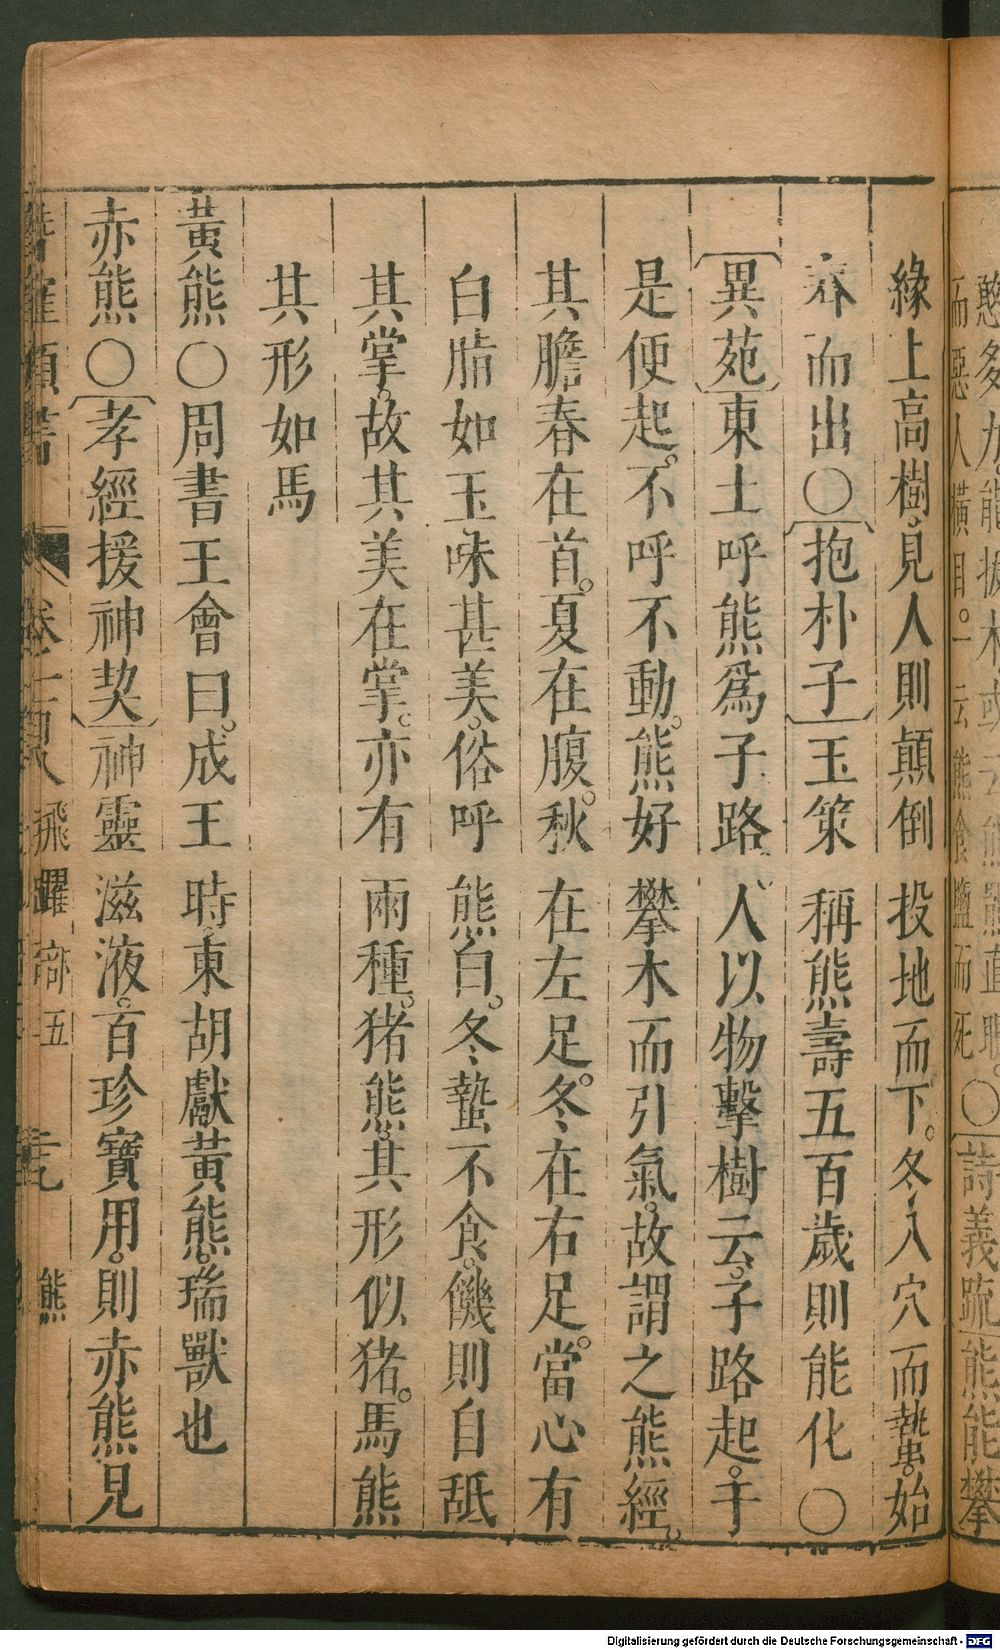 憨多力能拔木或云熊羆直眠。〇〔詩義疏〕熊能攀
而惡人橫目。一云熊食鹽而死
緣上高樹見人則顛倒投地而下。冬入穴而蟄。始
春而出〇〔抱朴子〕玉策稱熊壽五百歲則能化〇
〔異苑〕東土呼熊爲子路。人以物擊樹云。子路起。于
是便起。不呼不動。熊好攀木而引氣。故謂之熊經。
其膽春在首。夏在腹。秋在左足。冬在右足。當心有
白脂如玉味甚美。俗呼熊白。冬蟄不食。饑則自舐
其掌。故其美在掌。亦有兩種。猪熊。其形似猪。馬熊
其形如馬
黃熊〇周書王會曰。成王時。東胡獻黃熊。瑞獸也
赤熊〇〔孝經援神契〕神靈滋液。百珍寶用。則赤熊見
飛躍部五 熊
Digitalisierung gefördert durch die Deutsche Forschungsgemeinschaft - DFG